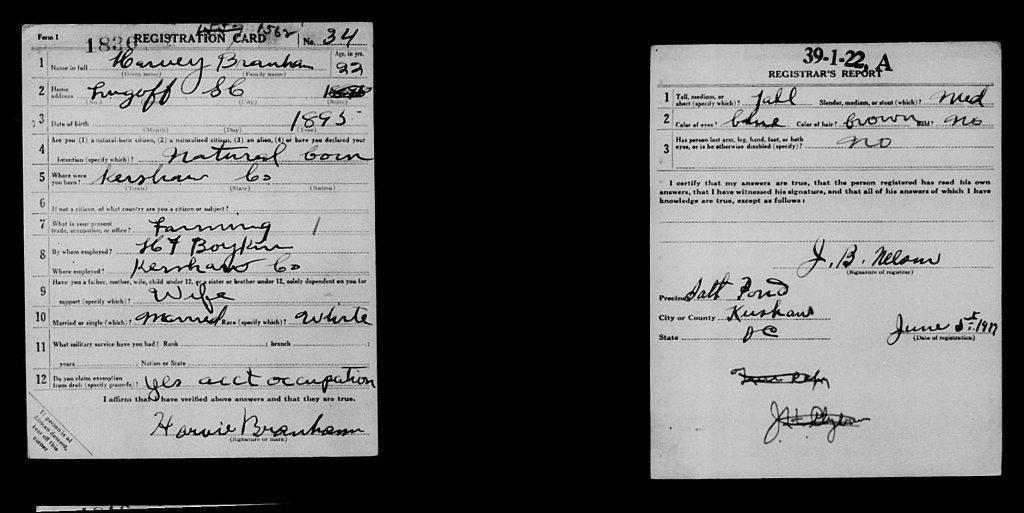 Form 1 1836 REGISTRATION CARD 1562 No. 34
1 Name in full Harvey Branham Age, in yrs. 22
(Given name) (Family name)
2 Home address Lugoff SC
(No.) (City) (State)
3 Date of birth 1895
(Month) (Day) (Year)
4 Are you (1) a natural-born citizen, (2) a naturalized citizen, (3) an alien, (4) or have you declared your
intention (specify which)? Natural born
5 Where were you born? Kershaw Co
(Town) (State) (Nation)
6 If not a citizen, of what country are you a citizen or subject?
7 What is your present trade, occupation, or office? Farming 1
8 By whom employed? Boykin
Where employed? Kershaw Co
9 Have you a father, mother, wife, child under 12, or a sister or brother under 12, solely dependent on you for
support (specify which)? Wife
10 Married or single (which)? Married Race (specify which)? White
11 What military service have you had? Rank ; branch ;
years ; Nation or State
12 Do you claim exemption from draft (specify grounds)? yes acct occupation
I affirm that I have verified above answers and that they are true.
Harvie Branham
(Signature or mark)
If person is of
African descent,
tear off this
corner
39-1-22, A
REGISTRAR'S REPORT
1 Tall, medium, or short (specify which)? Tall Slender, medium, or stout (which)? Med
2 Color of eyes? blue Color of hair? brown Bald? No
3 Has person lost arm, leg, hand, foot, or both
eyes, or is he otherwise disabled (specify)? No
I certify that my answers are true, that the person registered has read his own
answers, that I have witnessed his signature, and that all of his answers of which I have
knowledge are true, except as follows:
J. B. Nelson
(Signature of registrar)
Precinct Salt Pond
City or County Kershaw
State SC
June 5st 1917
(Date of registration)